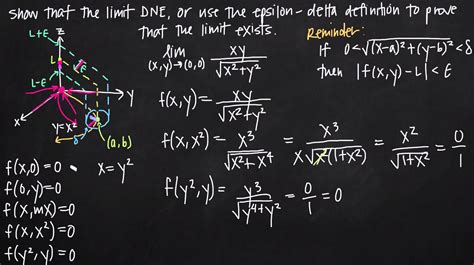 show that the limit DNE, or use the epsilon-delta definition to prove
that the limit exists.
Reminder:
If 0<√((x-a)²+(y-b)²)<δ
then |f(x,y)-L|<ε
lim (x,y)→(0,0) xy/√(x²+y²)
f(x,y)= xy/√(x²+y²)
f(x,x²)= x³/√(x²+x⁴) = x³/(x√(x²(1+x²))) = x²/√(1+x²) = 0/1
f(y²,y)= y³/√(y⁴+y²) = 0/1 = 0
z
L+ε
L
L-ε
y
x
y=x²
δ
(a,b)
f(x,0)=0
x=y²
f(0,y)=0
f(x,mx)=0
f(x,x²)=0
f(y²,y)=0